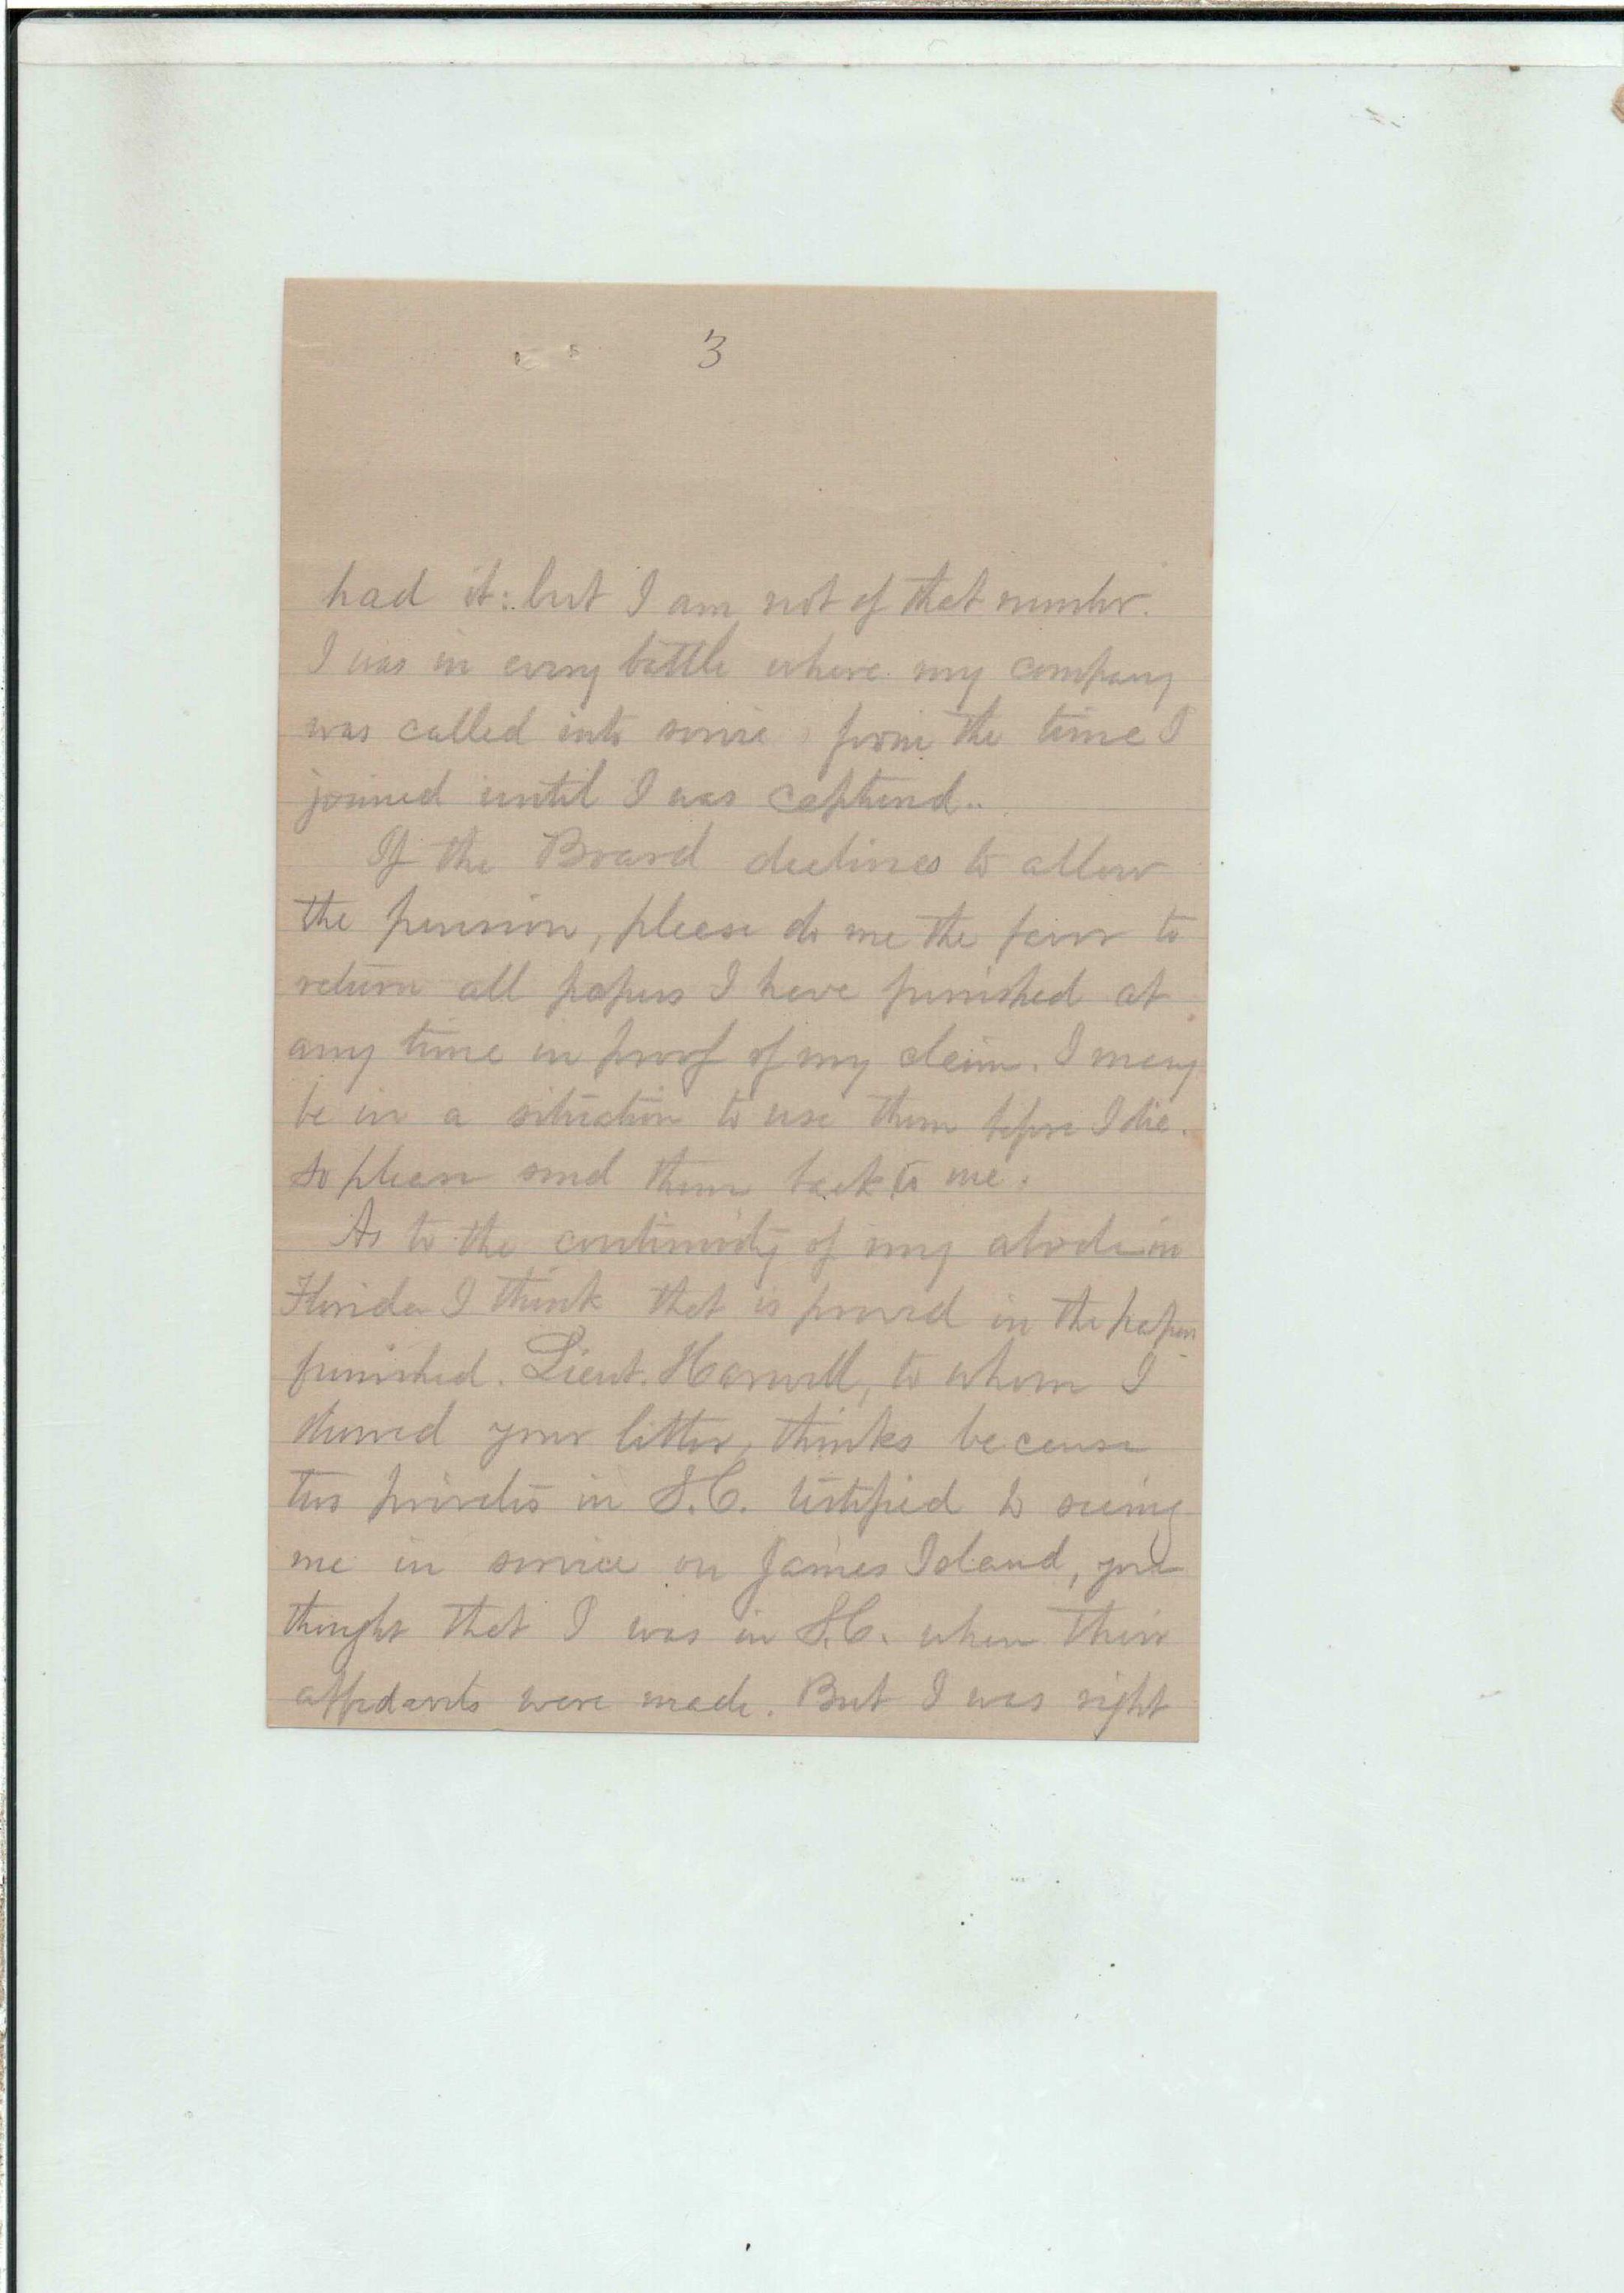 3
had it: but I am not of that number.
I was in every battle where my company
was called into service from the time I
joined until I was captured.
If the Board declines to allow
the pension, please do me the favor to
return all papers I have furnished at
any time in proof of my claim. I may
be in a situation to use them before I die.
So please send them back to me.
As to the continuity of my abode in
Florida I think that is proved in the papers
furnished. Lieut. to whom I
showed your letter, thinks because
two privates in S.C. testified to seeing
me in service on James Island, you
thought that I was in S.C. when their
affidavits were made. But I was right